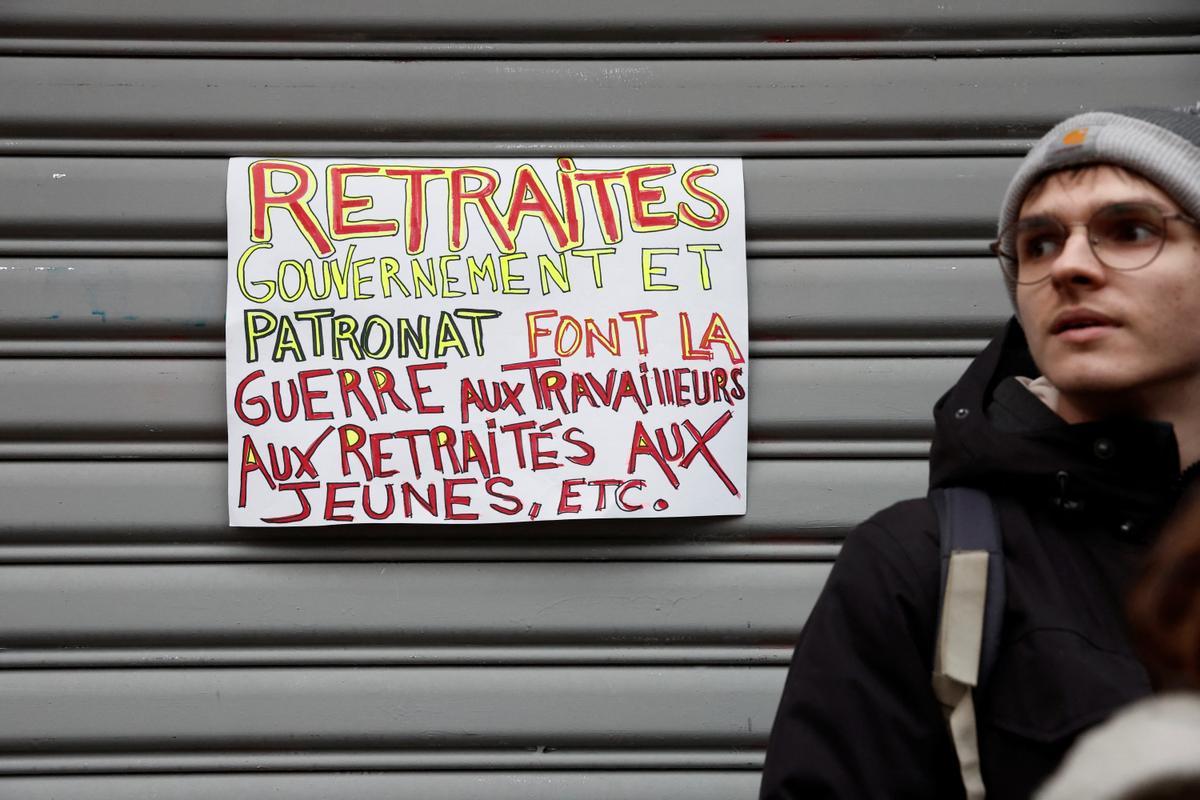 RETRAITES
GOUVERNEMENT ET
PATRONAT FONT LA
GUERRE AUX TRAVAILLEURS
AUX RETRAITÉS AUX
JEUNES, ETC.